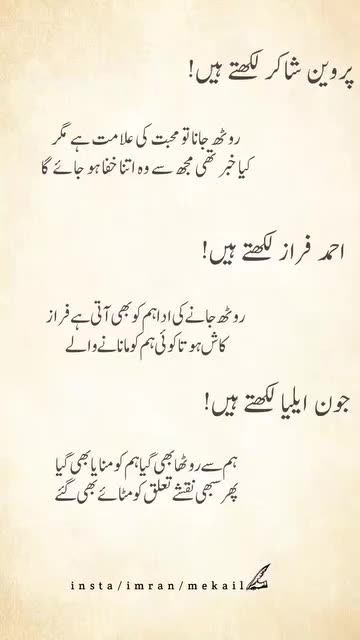 پروین شاکر لکھتے ہیں!
روٹھ جانا تو محبت کی علامت ہے مگر
کیا خبر تھی مجھ سے وہ اتنا خفا ہو جائے گا
احمد فراز لکھتے ہیں!
روٹھ جانے کی ادا ہم کو بھی آتی ہے فراز
کاش ہوتا کوئی ہم کو مانانے والے
جون ایلیا لکھتے ہیں!
ہم سے روٹھا بھی گیا ہم کو منایا بھی گیا
پھر سبھی نقشے تعلق کو مٹائے بھی گئے
insta/imran/mekail